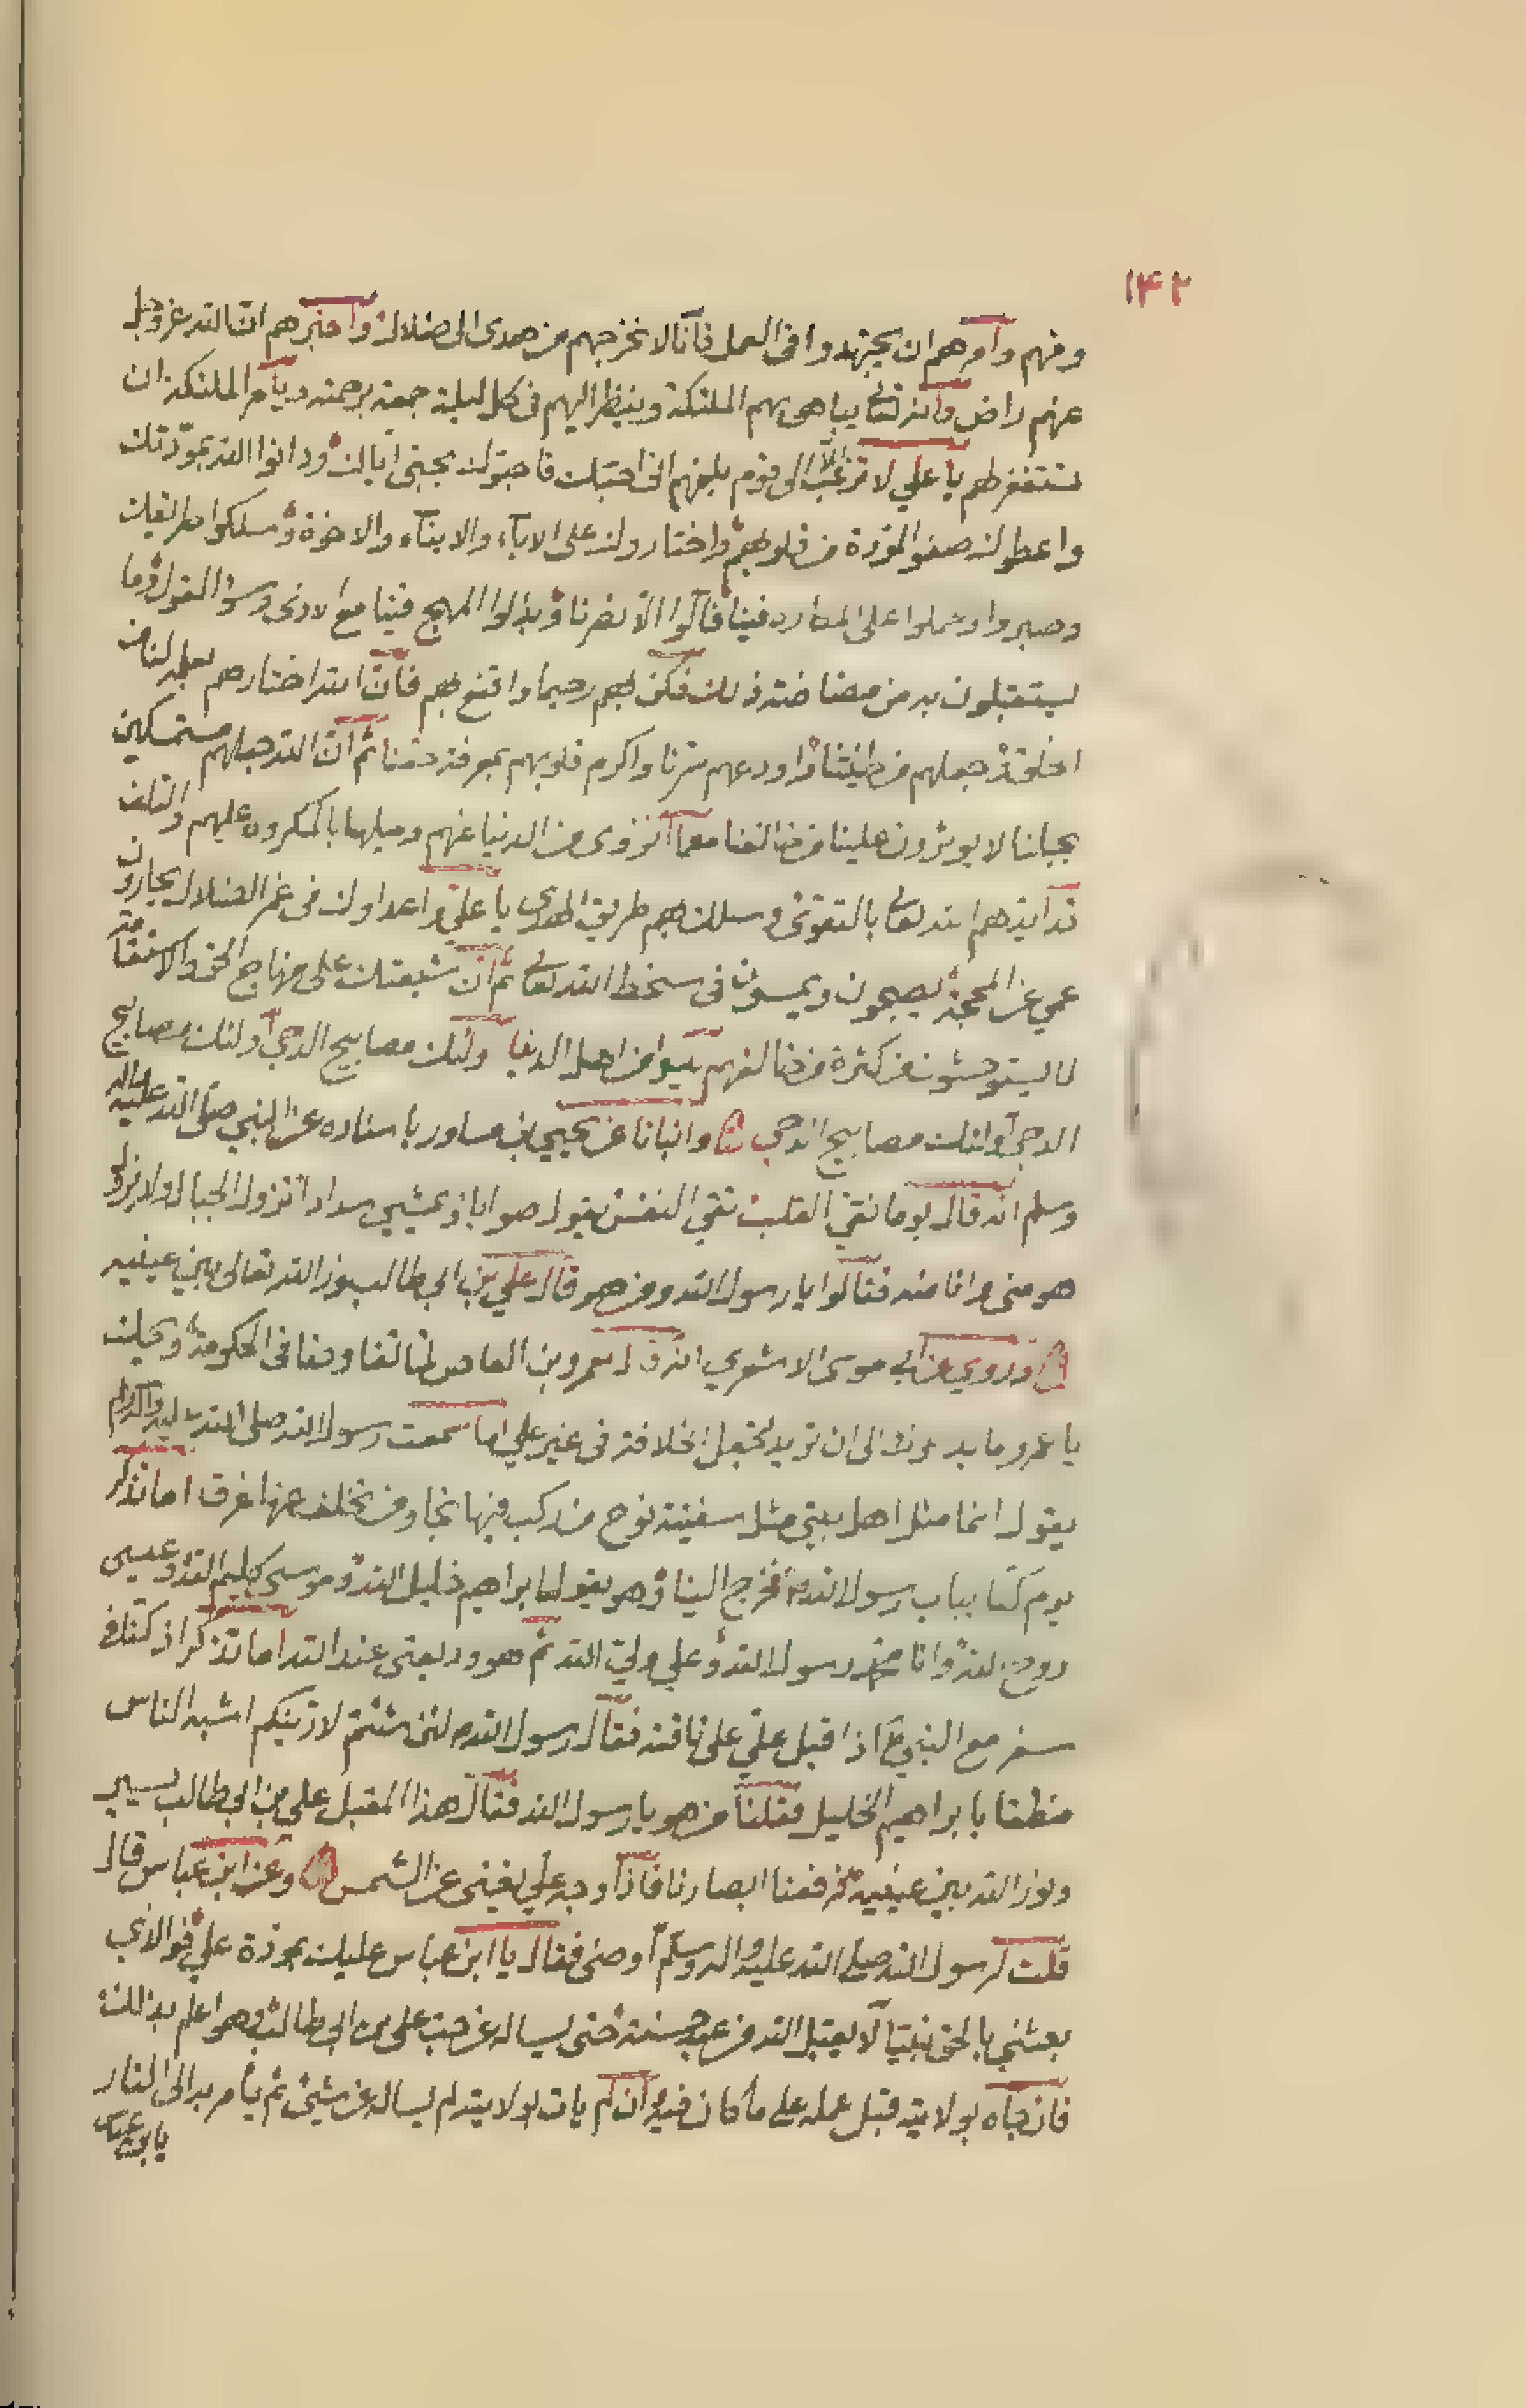 ۱۴۲
ومنهم وأمرهم ان يجتهدوا فى العمل فانّا لا نخرجهم من هدى الى ضلالة وأخبرهم انّ الله عز وجل
عنهم راض وانّه تعالى يباهى بهم الملئكة وينظر اليهم فى كل ليلة جمعة برحمته ويأمر الملئكة ان
تستغفر لهم يا علي لا ترغب الى قوم بلغهم انى احبك فاحبّوك بحبّى اياك ودانوا الله بمودّتك
واعطوك صفو المودة من قلوبهم واختاروك على الاباء والابناء والاخوة وسلكوا طريقك
وصبروا وحملوا على المكاره فينا فأبوا الّا نصرنا وبذلوا المهج فينا مع الاذى وسوء القول وما
يستقبلون به من مضاضة ذلك فكن بهم رحيما واقنع بهم فانّ الله اختارهم بعلمه لنا من
الخلق وجعلهم من طينتنا واودعهم سرّنا واكرم قلوبهم بمعرفة حقنا ثم انّ الله جعلهم مستمسكين
بحبلنا لا يوثرون علينا من خالفنا مع ما يزوى من الدنيا عنهم وميلها بالمكروه عليهم والتلف
قد ايدهم الله تعالى بالتقوى وسلك بهم طريق الهدى يا علي واعداوك فى غمر الضلال يحارون
عمي عن المحجة يصبحون ويمسون فى سخط الله تعالى ثم انّ شيعتك على منهاج الحق والاستقامة
لا يستوحشون من كثرة من خالفهم ليسوا من اهل الدنيا اولئك مصابيح الدجى اولئك مصابيح
الدجى اولئك مصابيح الدجى وانبانا عن يحيى بن مساور باسناده عن النبي صلى الله عليه واله
وسلم انه قال يوما نقي القلب نقي النفس يقول صوابا ويمشي سدادا تزول الجبال ولا يزول
هو منى وانا منه فقالوا يا رسول الله ومن هو قال علي بن ابى طالب نور الله تعالى بين عينيه
وروي عن ابى موسى الاشعري انه قال لعمرو بن العاص لما تفاوضا فى الحكومة ويحك
يا عمرو ما يدعوك الى ان تريد تجعل الخلافة فى غير علي اما سمعت رسول الله صلى الله عليه واله وسلم
يقول انما مثل اهل بيتى مثل سفينة نوح من ركب فيها نجا ومن تخلف عنها غرق اما تذكر
يوم كنّا بباب رسول الله فخرج الينا وهو يقول ابراهيم خليل الله وموسى كليم الله وعيسى
روح الله وانا محمد رسول الله وعلي ولي الله ثم هو وديعتى عند الله اما تذكر اذ كنّا فى
سفر مع النبي اذ اقبل علي على ناقته فقال رسول الله لئن شئتم لارينكم اشبه الناس
منطقا بابراهيم الخليل فقلنا من هو يا رسول الله فقال هذا المقبل على بن ابى طالب يسير
ونور الله بين عينيه فرفعنا ابصارنا فاذا وجه علي يغنى عن الشمس وعن ابن عباس قال
قلت لرسول الله صلى الله عليه واله وسلم اوصنى فقال يا ابن عباس عليك بمودة علي فوالذي
بعثني بالحق نبيّا لا يقبل الله من عبد حسنة حتى يساله عن حب على بن ابى طالب وهو اعلم بذلك
فان جاه بولايته قبل عمله على ما كان فيه وان لم يات بولايته لم يساله عن شيئ ثم يأمر به الى النار